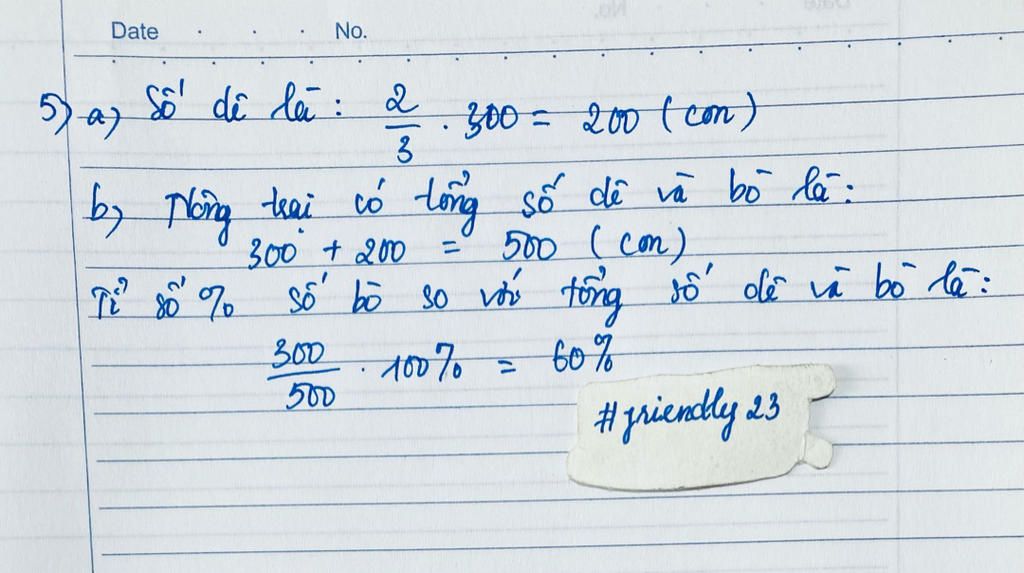 Date . . . No.
5) a) Số dê là: 2/3 . 300 = 200 (con)
b) Nông trại có tổng số dê và bò là:
300 + 200 = 500 (con)
Tỉ số % số bò so với tổng số dê và bò là:
300/500 . 100% = 60%
#friendly 23